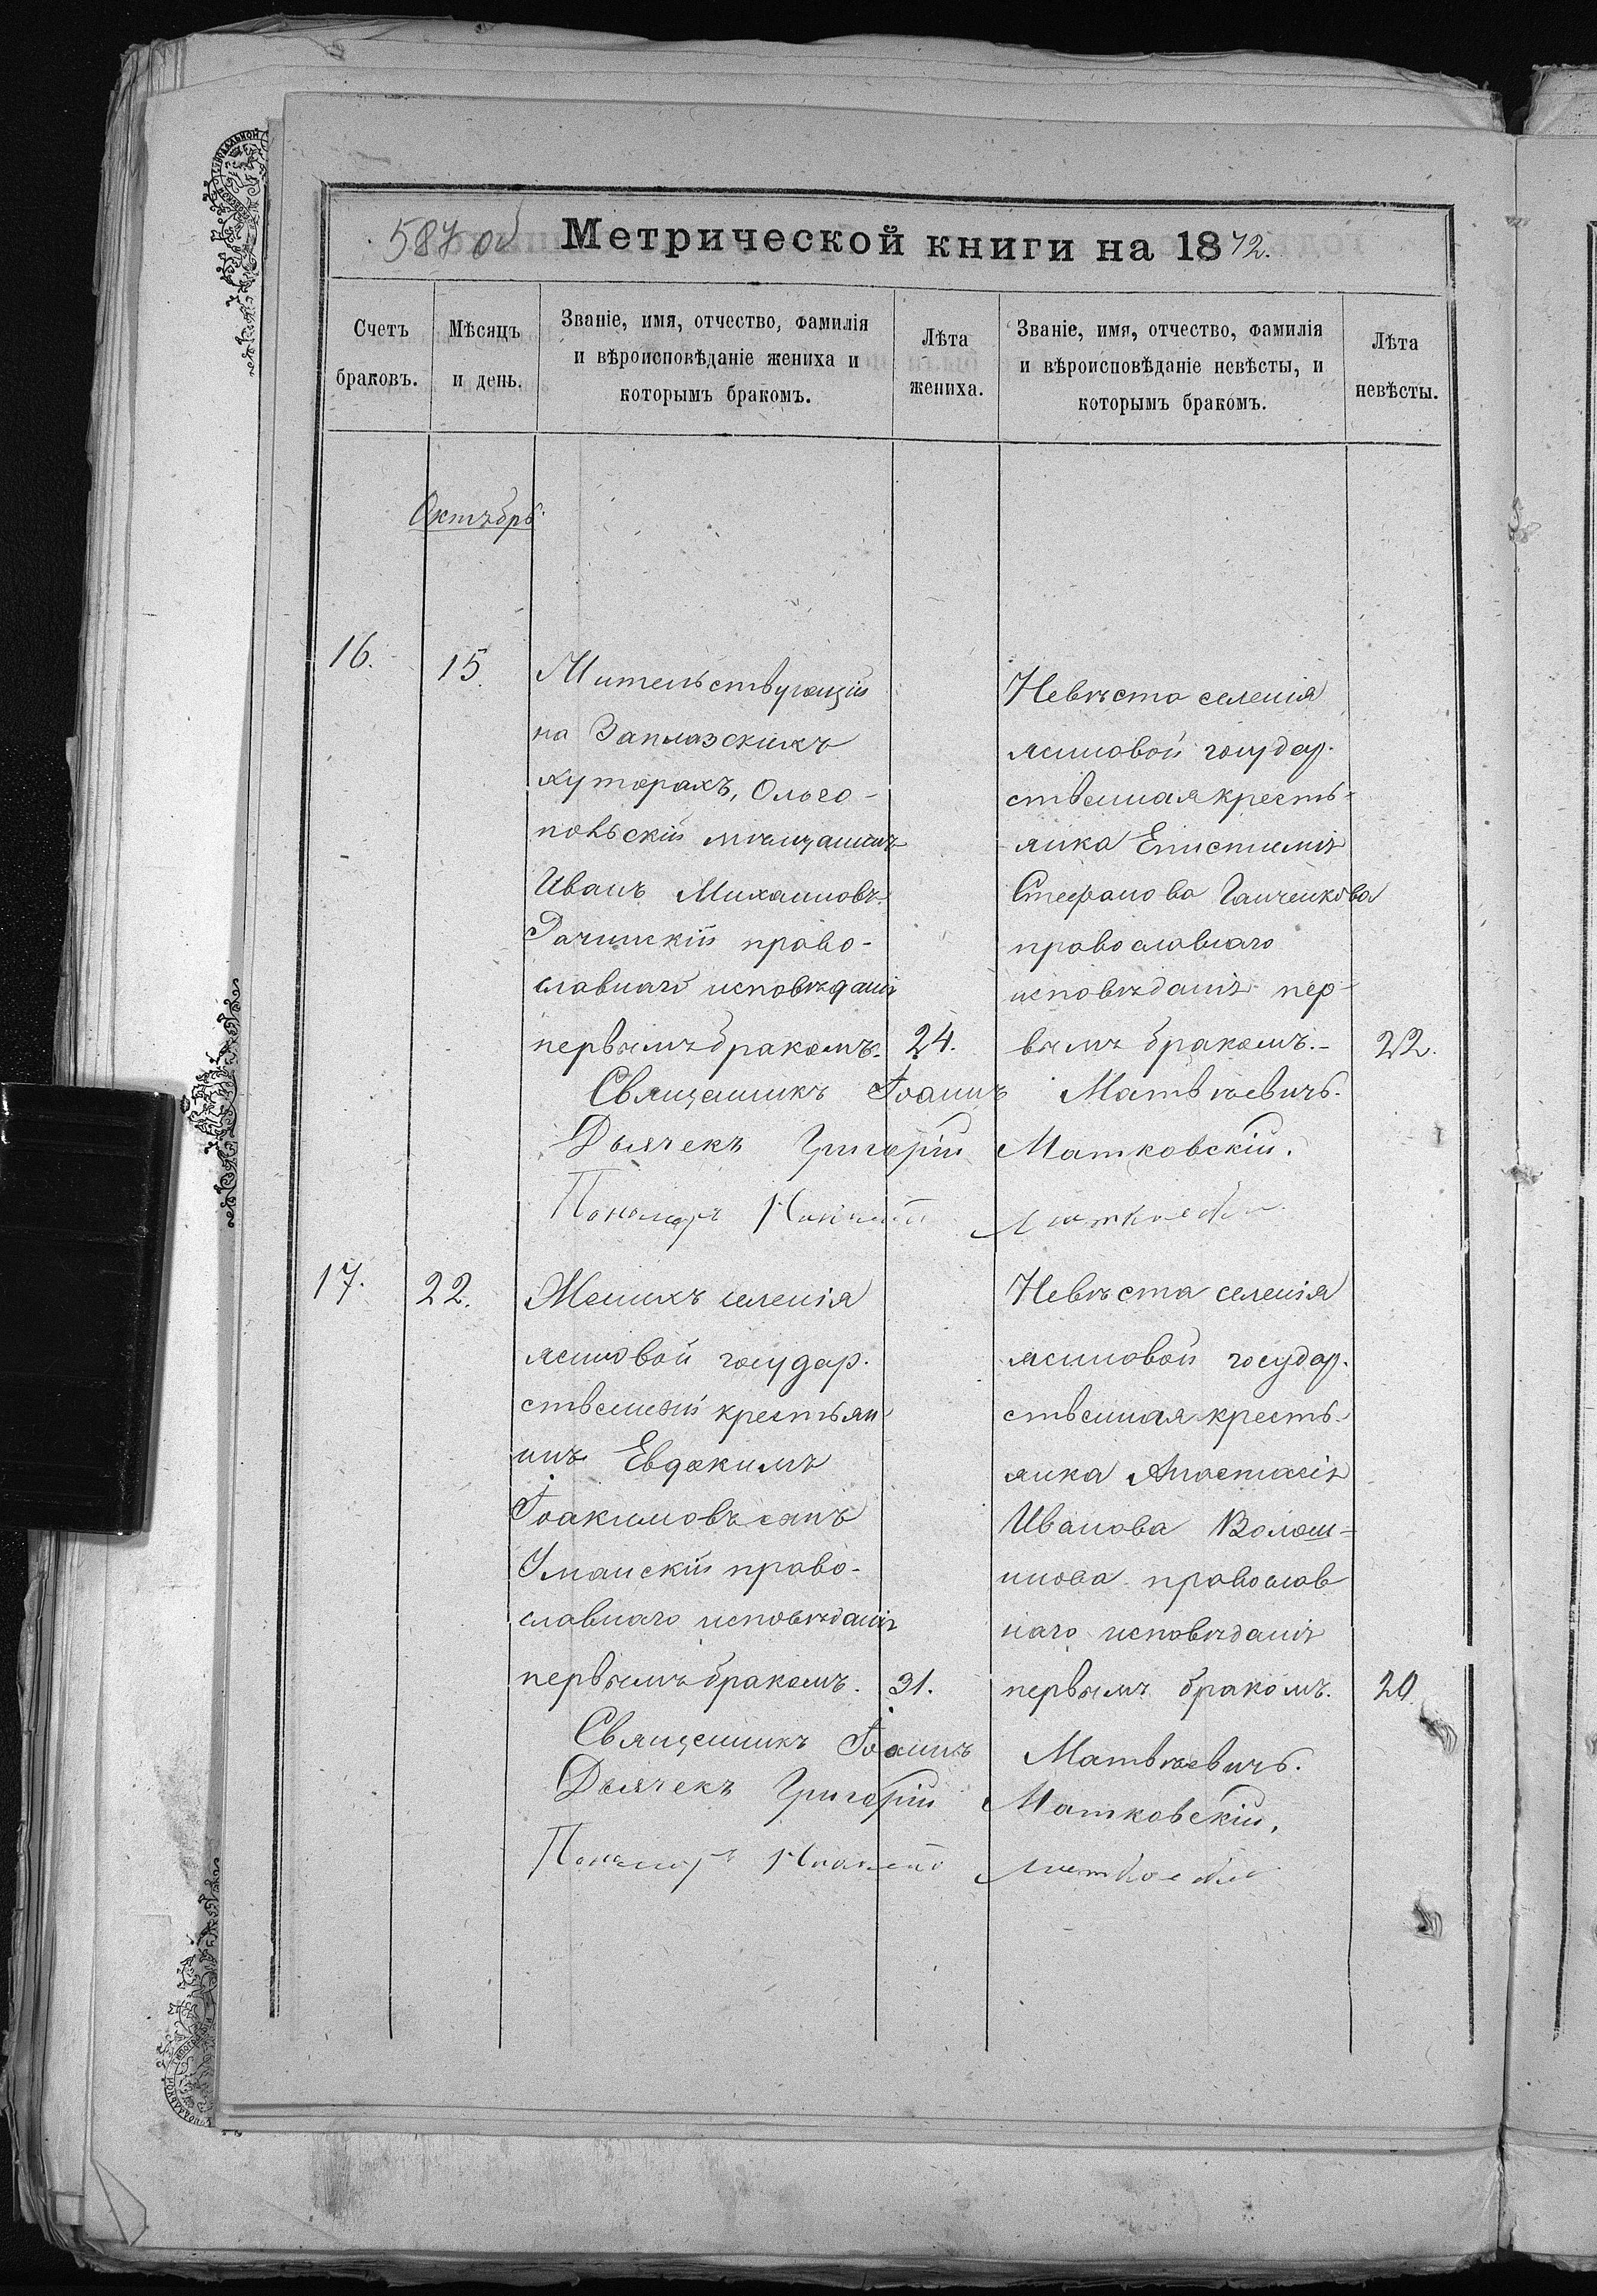 587 об Метрической книги на 1872.
Счетъ браковъ.
Мѣсяцъ и день.
Званіе, имя, отчество, фамилія
и вѣроисповѣданіе жениха и
которымъ бракомъ.
Лѣта жениха.
Званіе, имя, отчество, фамилія
и вѣроисповѣданіе невѣсты, и
которымъ бракомъ.
Лѣта невѣсты.
Октябрь.
16.
15.
Жительствующій
на Заплазскихъ
хуторахъ, Ольго-
польскій мѣщанинъ
Иванъ Михаиловъ
Рачинскій право-
славнаго исповѣданія
первымъ бракомъ.
24.
Невѣста селенія
Ясиновой государ-
ственная кресть-
янка Епистимія
Стефанова Ганченкова
православнаго
исповѣданія пер-
вымъ бракомъ.-
22.
Священникъ Іоаннъ Матвѣевичъ.
Дьячекъ Григорій Матковскій.
Пономарь
17.
22.
Женихъ селенія
Ясиновой государ-
ственный крестьян-
инъ Евдокимъ
Іоакимовъ сынъ
Уманскій право-
славнаго исповѣданія
первымъ бракомъ.
31.
Невѣста селенія
Ясиновой государ-
ственная кресть-
янка Анастасія
Иванова Волош-
инова православ
наго исповѣданія
первымъ бракомъ.
20.
Священникъ Іоаннъ Матвѣевичъ.
Дьячекъ Григорій Матковскій.
Пономарь